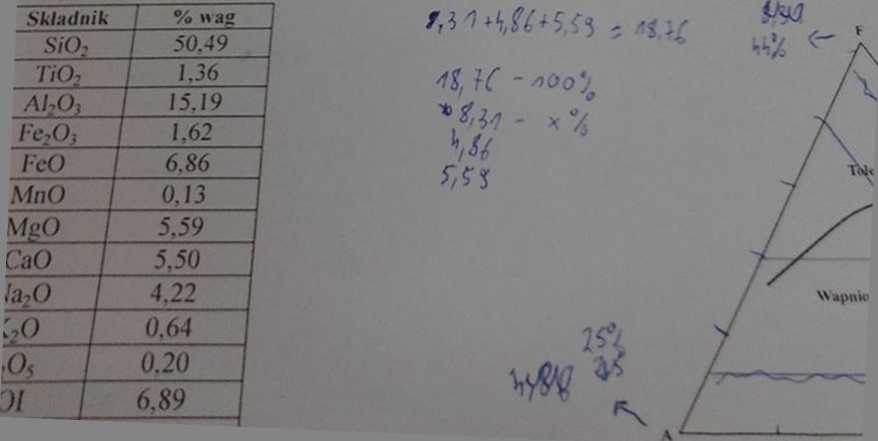 Składnik % wag
SiO₂ 50,49
TiO₂ 1,36
Al₂O₃ 15,19
Fe₂O₃ 1,62
FeO 6,86
MnO 0,13
MgO 5,59
CaO 5,50
Na₂O 4,22
K₂O 0,64
O₅ 0,20
OI 6,89
8,31+4,86+5,59 = 18,76
18,76 - 100%
8,31 - x %
4,86
5,59
44% ←
F
Tole
Wapnio
25%
A